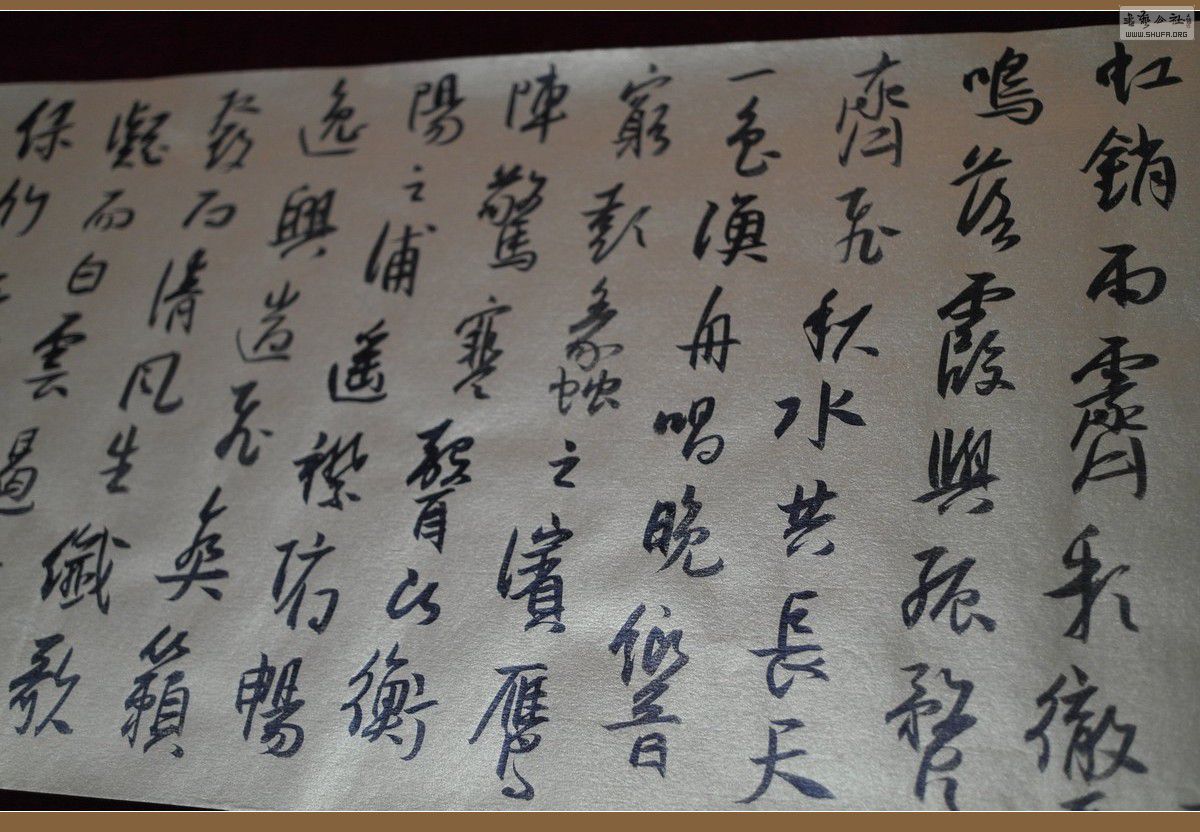 虹銷雨霽彩徹
鳴落霞與孤鶩
齊飛秋水共長天
一色漁舟唱晚響
窮彭蠡之濱鴈
陣驚寒聲斷衡
陽之浦遙襟俯暢
逸興遄飛爽籟
發而清風生纖歌
凝而白雲遏
綠竹
WWW.SHUFA.ORG